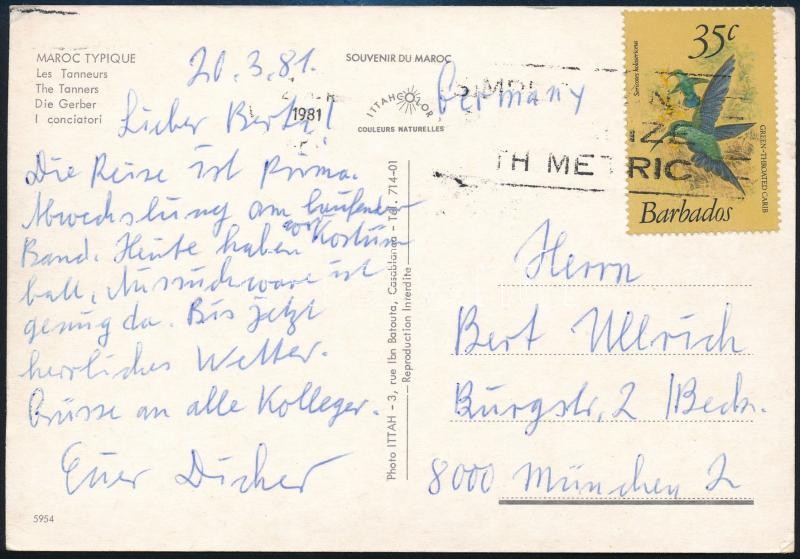 MAROC TYPIQUE
Les Tanneurs
The Tanners
Die Gerber
I conciatori
20.3.81.
Lieber Bert!
Die Reise ist prima.
Abwechslung am laufenden
Band. Heute haben wir Kostüm
ball,
ist
genug da. Bis jetzt
herrliches Wetter.
Grüsse an alle Kollegen.
Euer
5954
SOUVENIR DU MAROC
ITTAHCOLOR
COULEURS NATURELLES
1981
TH METRIC
Photo ITTAH - 3, rue Ibn Batouta, Casablanca - Tél. 714-01
Reproduction Interdite
35c
Sericotes holosericeus
GREEN-THROATED CARIB
Barbados
Germany
Herrn
Bert Ullrich
Burgstr. 2 /Beck.
8000 München 2